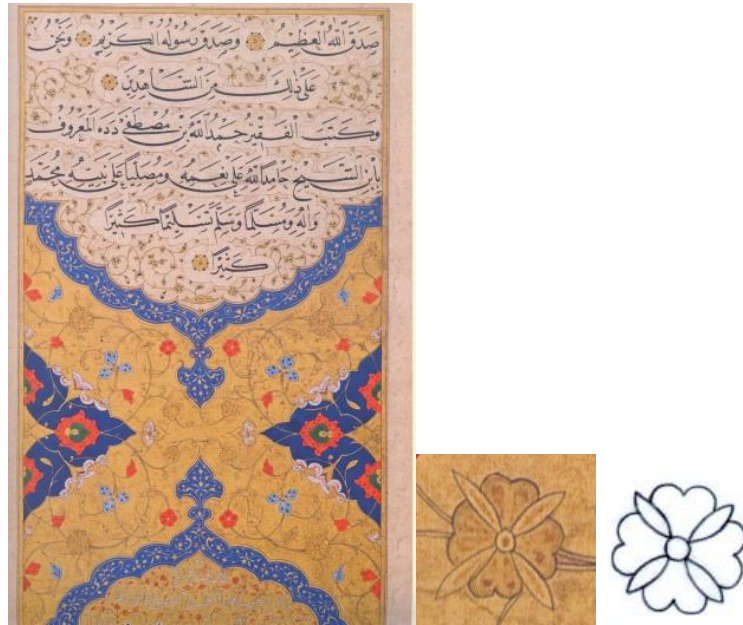 صَدَقَ اللّٰهُ الْعَظِيمُ وَصَدَقَ رَسُولُهُ الْكَرِيمُ وَنَحْنُ
عَلَى ذٰلِكَ مِنَ الشَّاهِدِينَ
وَكَتَبَ الْفَقِيرُ حَمْدُ اللّٰهِ بْنُ مُصْطَفَى دَدَه الْمَعْرُوفُ
بِابْنِ الشَّيْخِ حَامِدًا لِلّٰهِ عَلَى نِعَمِهِ وَمُصَلِّيًا عَلَى نَبِيِّهِ مُحَمَّدٍ
وَآلِهِ وَمُسَلِّمًا وَسَلَّمَ تَسْلِيمًا كَثِيرًا
كَثِيرًا